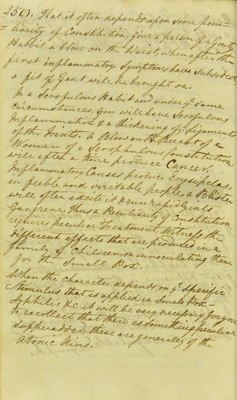 250). That it often depends upon some pecu-
=liarity of Constitution, give a person of a Gouty
Habit a blow on the Wrist, when after the
first inflammatory Symptoms have subsided
a fit of Gout will be brought on.
In a Scrofulous Habit and under ye same
Circumstances you will have Scrofulous
Inflammation & a thickening of ye Ligaments
of the Joints. A Blow on ye Breast of a
Woman of a Scrophulous Constitution
will after a time produce Cancer.
Inflammatory Causes produce Erysipelas.
in feeble and irritable people, a Blister
will often excite it & run rapidly into
Gangrene. Thus a Peculiarity of Constitution
requires peculiar Treatment. Witness the
different effects that are produced in a
family of Children on innoculating them
for the Small Pox.
When the character depends on ye Specific
Stimulus that is applied in Small Pox
Syphilis &c. it will be very necessary for you
to recollect that there is something peculiar
superadded, these are generally of the
Atonic kind.